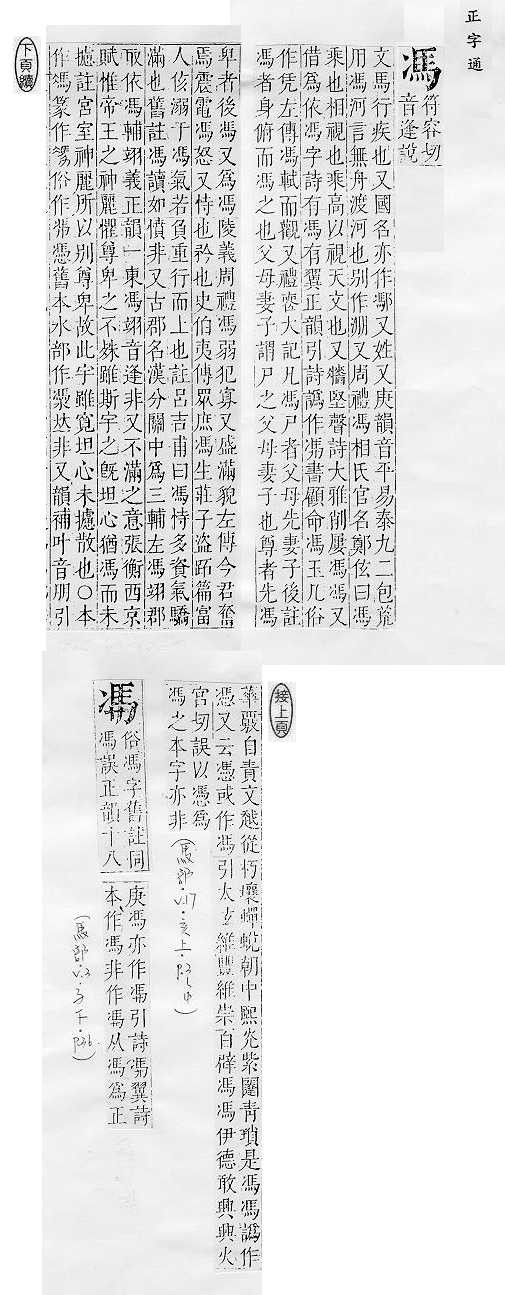 正字通
馮 符容切
音逢說
文馬行疾也又國名亦作鄸又姓又庚韻音平易泰九二包荒
用馮河言無舟渡河也別作淜又周禮馮相氏官名鄭伭曰馮
乘也相視也乘高以視天文也又牆堅聲詩大雅削屢馮馮又
借為依馮字詩有馮有翼正韻引詩譌作凴書顧命馮玉几俗
作凭左傳馮軾而觀又禮喪大記凡馮尸者父母先妻子後註
馮者身俯而馮之也父母妻子謂尸之父母妻子也尊者先馮
卑者後馮又為馮陵義周禮馮弱犯寡又盛滿貌左傳今君奮
焉震電馮怒又恃也矜也史伯夷傳眾庶馮生莊子盜跖篇富
人侅溺于馮氣若負重行而上也註呂吉甫曰馮恃多資氣驕
滿也舊註馮讀如憤非又古郡名漢分關中為三輔左馮翊郡
取依馮輔翊義正韻一東馮翊音逢非又不滿之意張衡西京
賦惟帝王之神麗懼尊卑之不殊雖斯宇之旣坦心猶馮而未
攄註宮室神麗所以別尊卑故此宇雖寬坦心未攄散也○本
作馮篆作俗作凴憑舊本水部作𠀤非又韻補叶音朋引
下頁續
接上頁
華覈自責文越從朽壤蟬蛻朝中熙光紫闥青瑣是馮馮譌作
憑又云憑或作馮引太玄維豐維崇百辟馮馮伊德攸興興火
宮切誤以憑為
馮之本字亦非(馬部.V.17.亥上.P.中)
俗馮字舊註同
馮誤正韻十八
庚馮亦作凴引詩凴翼詩
本作馮非作馮从馮為正
(馬部.V.2.子下.P.36.)